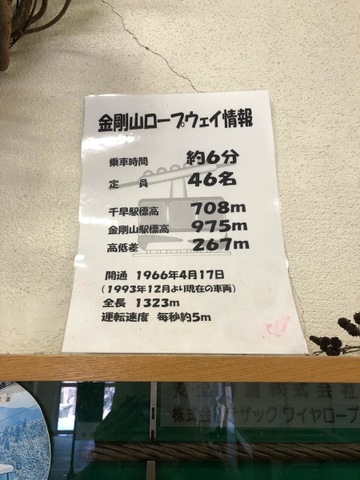 金剛山ロープウェイ情報
乗車時間 約6分
定員 46名
千早駅標高 708m
金剛山駅標高 975m
高低差 267m
開通 1966年4月17日
(1993年12月より現在の車両)
全長 1323m
運転速度 毎秒約5m
株式会社
ワイヤロープ